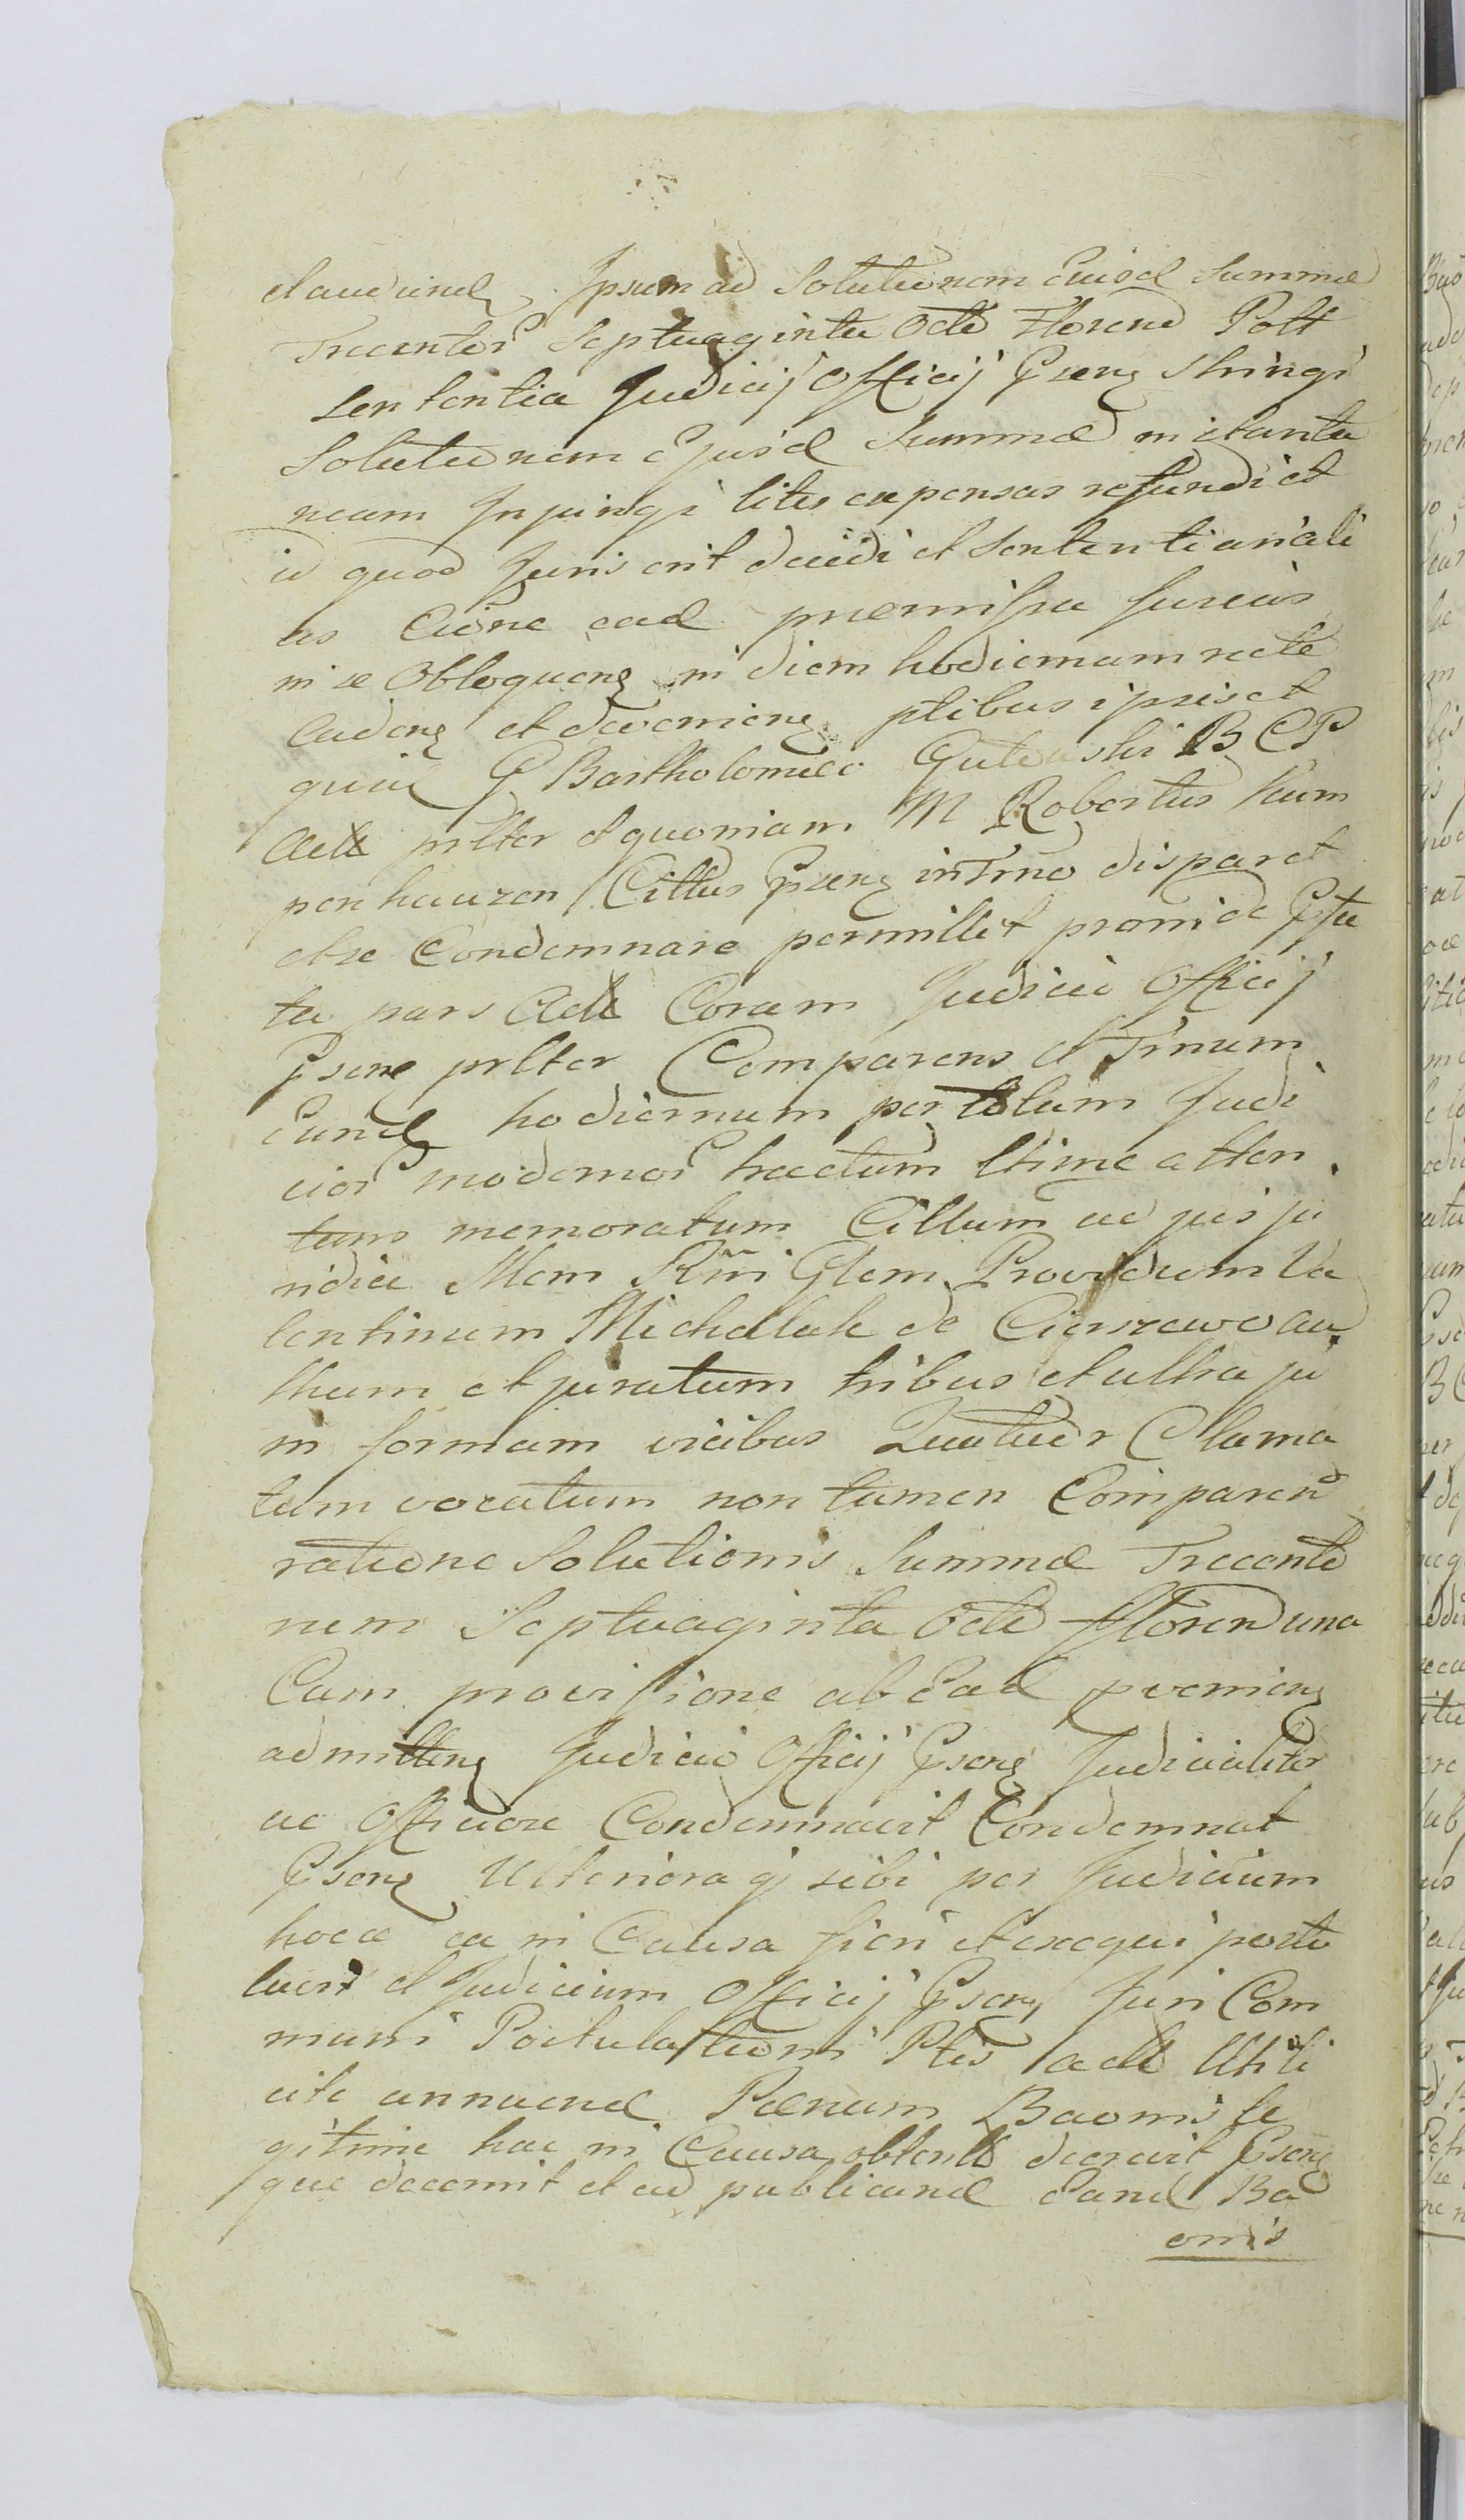 et audiend Ipsum ad Solutionem Euisd Summæ
Trecentor Septuaginta Octo Floreno Poll
Sententia Judicij Officij Psens Stringi
Solutionem ejusd Summæ instanta
neam Injungi litis expensas refundi et
id quod Juris erit decidi et Sententiari ali
as Citone ead præmissa
in se Obloquens in diem hodiernum recte
Cadens et deveniens ptibus ipsis et
quid G Bartholomæo Gutowski B C P
Actt prltter et quoniam M Robertus Kum
penhauzen Cittus Psens in Trno disparet
et se Condemnare permittit proinde Psta
ta pars Actt Coram Judicio Officij
Psens prltter Comparens et Trnum
Eund hodiernum per totum Judi
cior modernor tractum ltime atten
tans memoratum Cittum ad jus ju
ridice Mem Rmi Gtem Providum Va
lentinum Michallak de Cierszewo au
thum et juratum tribus et ultra ju
in formam vicibus Quatuor Clama
tum vocatum non tamen Comparen
ratione Solutionis Summæ Trecento
rum Septuaginta Octo floren una
Cum provisione ab Ead proveniens
admittens Judicio Officij Psens Judicialiter
ac Officiose Condemnavit Condemnat
Psens Ulterioraq sibi per Judicium
hocce ea in Causa fieri et exequi postu
lavit et Judicium Officij Psens Juri Com
muni Postulationi Ptis actt
cite annuend Pænam Baonis le
gitime hac in Causa obtent decrevit Psens
que decernit et ad publicand Eand Ba
onis